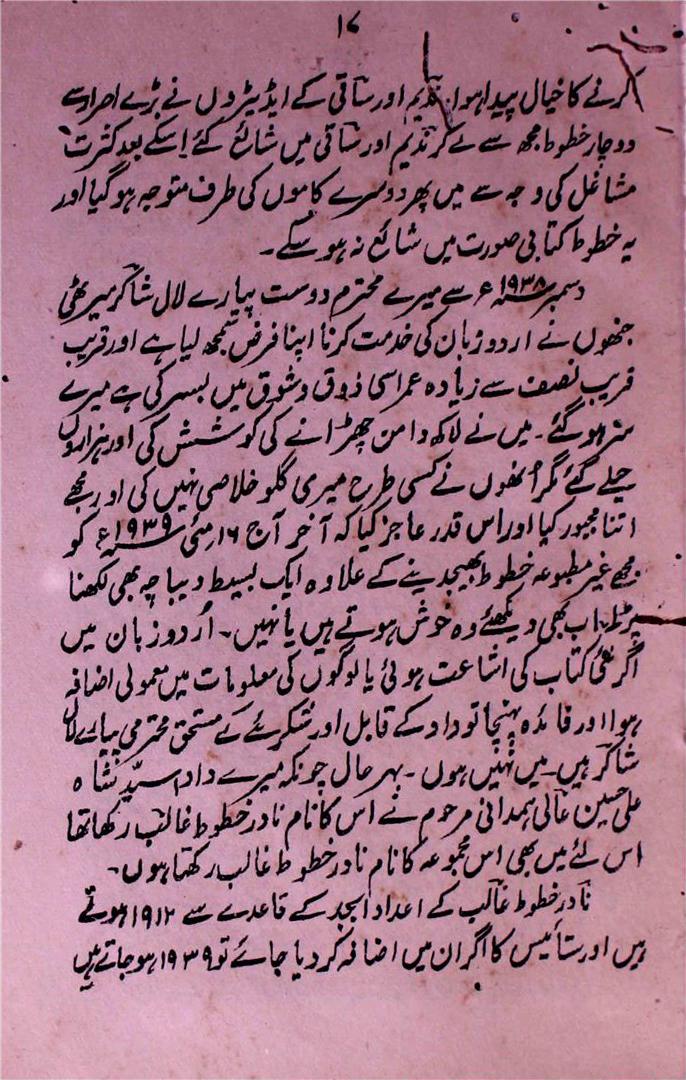 ۱۷
کرنے کا خیال پیدا ہوا۔ ندیم اور ساقی کے ایڈیٹروں نے بڑے اصرار سے
دو چار خطوط مجھ سے لے کر ندیم اور ساقی میں شائع کئے اسکے بعد کثرت
مشاغل کی وجہ سے میں پھر دوسرے کاموں کی طرف متوجہ ہو گیا اور
یہ خطوط کتابی صورت میں شائع نہ ہو سکے۔
دسمبر ۱۹۳۸ء سے میرے محترم دوست پیارے لال شاکر میرٹھی
جنھوں نے اردو زبان کی خدمت کرنا اپنا فرض سمجھ لیا ہے اور قریب
قریب نصف سے زیادہ عمر اسی ذوق و شوق میں بسر کی ہے میرے
سر ہو گئے۔ میں نے لاکھ دامن چھڑانے کی کوشش کی اور ہزاروں
حیلے کئے مگر اُنھوں نے کسی طرح میری گلو خلاصی نہیں کی اور مجھے
اتنا مجبور کیا اور اس قدر عاجز کیا کہ آخر آج ۱۶ مئی ۱۹۳۹ء کو
مجھے غیر مطبوعہ خطوط بھیجدینے کے علاوہ ایک بسیط دیباچہ بھی لکھنا
پڑا۔ اب بھی دیکھئے وہ خوش ہوتے ہیں یا نہیں۔ اُردو زبان میں
اگر نئی کتاب کی اشاعت ہوئی یا لوگوں کی معلومات میں معمولی اضافہ
ہوا اور فائدہ پہنچا تو داد کے قابل اور شکرئے کے مستحق محترمی پیارے لال
شاکر ہیں۔ میں نہیں ہوں۔ بہر حال چونکہ میرے دادا سیّد شاہ
علی حسین عالی ہمدانی مرحوم نے اس کا نام نادر خطوط غالب رکھا تھا
اس لئے میں بھی اس مجموعہ کا نام نادر خطوط غالب رکھتا ہوں۔
نادر خطوط غالب کے اعداد ابجد کے قاعدے سے ۱۹۱۲ ہوتے
ہیں اور ستائیس کا اگر ان میں اضافہ کر دیا جائے تو ۱۹۳۹ ہو جاتے ہیں